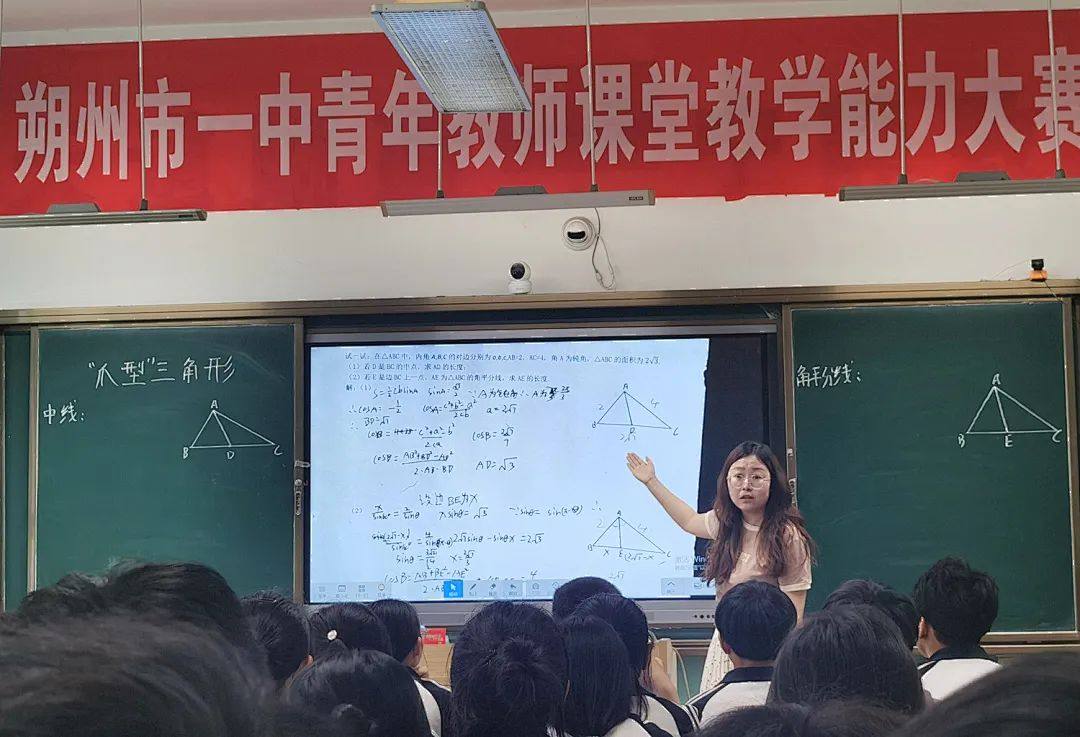 朔州市一中青年教师课堂教学能力大赛
“爪型”三角形
中线:
A
B D C
试一试:在△ABC中,内角A,B,C的对边分别为a,b,c,AB=2,AC=4,角A为钝角,△ABC的面积为2√3.
(1)若D是BC的中点,求AD的长度;
(2)若E是边BC上一点,AE为△ABC的角平分线,求AE的长度
解:(1) S=½cbsinA sinA=√3/2 ∵A为钝角 ∴A为
∴cosA=-½ cosA=(c²+b²-a²)/2cb a=2√7
∴BD=√7
cosB=(c²+a²-b²)/2ca cosB=2√7/7
cosB=(AB²+BD²-AD²)/(2·AB·BD) AD=√3
A
2 4
B D C
2√7
设边BE为x
(2) xsinθ=√3 ∵sinθ=sin(π-θ)
2√7sinθ-sinθx=2√3
A
2 4
B x E (2√7-x) C
2√7
cosB=
角平分线:
A
B E C